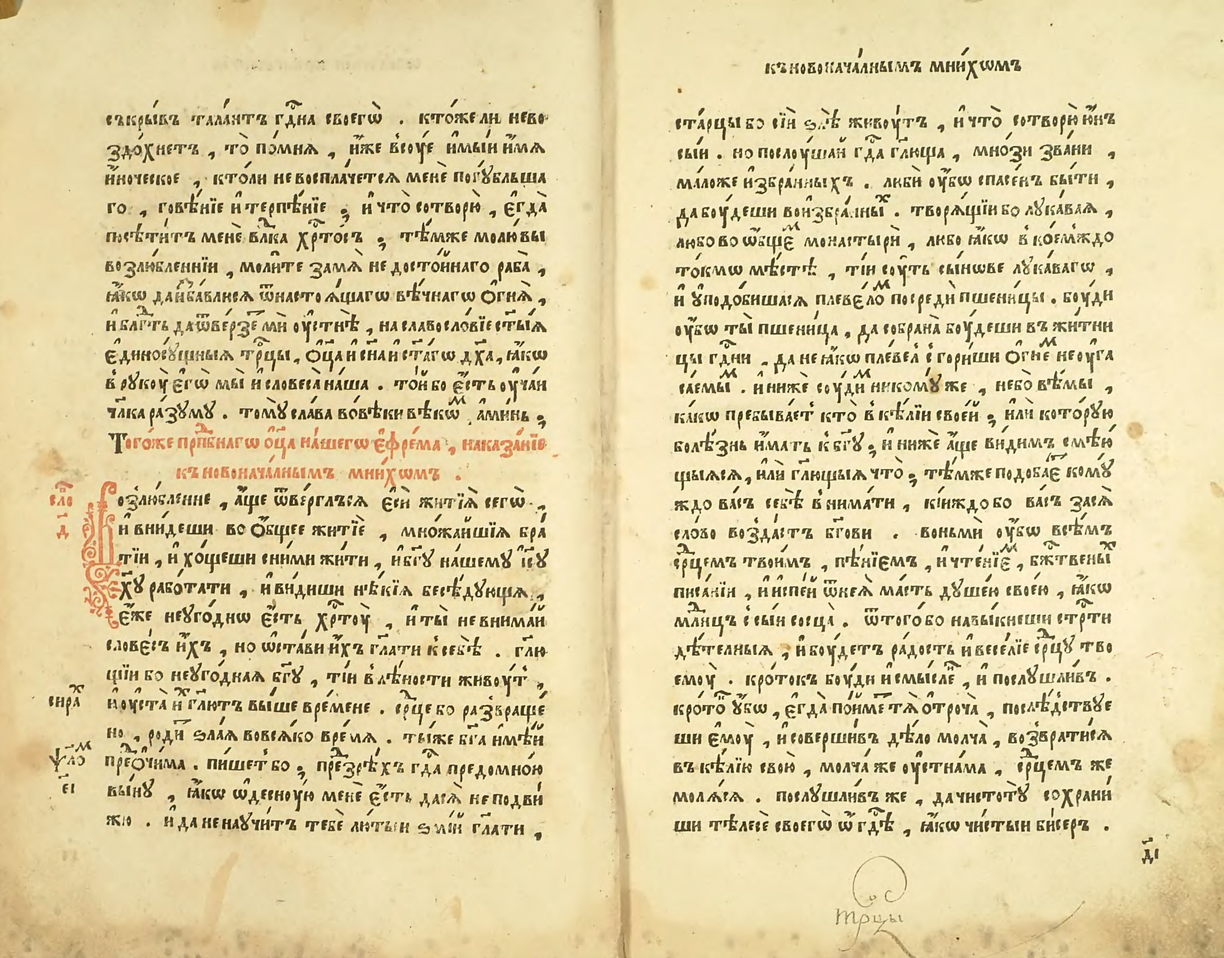 съкры́въ тала́нтъ гдⷭ҇на своегѡ̀ . кто́же ли нево
здо́хнетъ , то̀ по́мнѧ , и҆́же всꙋ́е имы́и и҆́мѧ
и҆́ноческое , кто́ли не воспла́четсѧ менѐ погꙋ́бльша
го , говѣ́нїе и҆ терпѣ́нїе ; и҆ что̀ сотворю̀ , є҆гда̀
посѣти́тъ менѐ влⷣка хрⷭ҇то́съ ; тѣ́мже молю̀ вы̀
возлю́бленнїи , моли́те за мѧ̀ не досто́йнаго раба̀ ,
ꙗ҆́кѡ да и҆зба́влюсѧ ѿ настоѧ́щагѡ вѣ́чнагѡ ѻ҆гнѧ̀ ,
и҆ блгⷣть да ѿве́рзетъ мѝ оу҆стнѣ̀ , на славосло́вїе ст҃ы́ѧ
є҆диносꙋ́щныѧ трⷪ҇цы , ѻ҆ц҃а̀ и҆ сн҃а и҆ ст҃а́гѡ дх҃а , ꙗ҆́кѡ
в рꙋкоу̀ є҆гѡ̀ мы̀ и҆ словеса̀ на́ша . то́й бо є҆́сть оу҆ча́и
чл҃ка ра́зꙋмꙋ . томꙋ̀ сла́ва во вѣ́ки вѣкѡ́мъ , а҆ми́нь ;
Того́же прпⷣбнагѡ ѻ҆ц҃а̀ на́шегѡ є҆фре́ма , наказа́нїе
къ новонача́лнымъ мни́хѡмъ .
сло́
д҃
Возлю́бленне , а҆́ще ѿве́рглъсѧ є҆сѝ житїѧ̀ сегѡ̀ ,
и҆ вни́деши во ѻ҆́бщее житїѐ , мно́жайшїѧ бра́
тїи , и҆ хо́щеши сни́ми жи́ти , и҆ бг҃ꙋ на́шемꙋ і҆с҃ꙋ
хꙋ̀ рабо́тати , и҆ ви́диши нѣ́кїѧ бесѣ́дꙋющѧ ,
є҆́же неꙋго́днѡ є҆́сть хрⷭ҇тоу̀ , и҆ ты̀ не внима́й
слове́съ и҆́хъ , но ѡ҆ста́ви и҆́хъ гл҃ати к себѣ̀ . гл҃ю
щїи бо неꙋго́днаѧ бг҃ꙋ , тїи в лѣ́ности живоу́тъ ,
сира́х
и҆ оу҆ста̀ и҆́хъ гл҃ютъ вы́ше вре́мене . срⷣце бо развраще́
но , роди́тъ ѕла́ѧ во всѧ́ко вре́мѧ . ты́же бг҃а имѣ́й
ѱало́м
є҃і
пред̾ ѻ҆чи́ма . пи́шетъ бо , презрѣ́хъ гдⷭ҇а предомно́ю
вы́нꙋ , ꙗ҆́кѡ ѡ҆деснꙋ́ю менѐ є҆́сть да сѧ̀ не подви́
жю . и҆ да не наꙋчи́тъ тебѐ лю́тыи ѕмі́й гл҃ати ,
къ новонача́лнымъ мни́хѡмъ
ста́рцы бо сі́и ѕлѣ̀ живоу́тъ , и҆ что̀ сотворю̀ ю҆́нъ
сы́и . но послоу́шай гдⷭ҇а гл҃юща , мно́зи зва́ни ,
ма́ложе и҆збра́нныхъ . любѝ оу҆́бѡ спасе́нъ бы́ти ,
да боу́деши во и҆збра́нныхъ . творѧ́щїи бо лꙋка́ваѧ ,
любо во ѡ҆́бщемъ монастырѝ , любо ꙗ҆́кѡ в ко́емждо
то́кмѡ мѣ́стѣ , ті́и соу́ть сы́нове лꙋка́вагѡ ,
и҆ ꙋподо́бишасѧ пле́веломъ посредѝ пшени́цы . боу́ди
оу҆́бѡ ты̀ пшени́ца , да со́брана боу́деши въ жи́тни
цы гдⷭ҇ни . да не ꙗ҆́кѡ пле́велъ сгори́ши ѻ҆гне́мъ неꙋга
са́емымъ . и҆ нижѐ соу́димъ нико́мꙋ же , не бо̀ вѣ́мы ,
ка́кѡ пребыва́етъ кто̀ в кѣ́лїи свое́й ; и҆лѝ кото́рꙋю
болѣ́знь и҆́мать к бг҃ꙋ ; и҆ нижѐ а҆́ще ви́димъ смѣю́
щыѧсѧ , и҆лѝ гл҃ющыѧ что̀ ; тѣ́мже подоба́етъ комꙋ́
ждо ва́съ себѣ̀ внима́ти , кі́иждо бо ва́съ за сѧ̀
сло́во возда́стъ бг҃ови . вонмѝ оу҆́бѡ всѣ́мъ
срⷣцемъ твои́мъ , пѣ́нїемъ , и҆ чте́нїемъ , бжⷭ҇твены́хъ
писа́нїи , и҆ и҆спе́й ѿнеѧ̀ ма́сть дꙋше́ю свое́ю , ꙗ҆́кѡ
млⷣнцъ є҆сы́и сосца̀ . ѿ того́ бо навы́кнеши стрⷭ҇ти
дѣ́телныѧ , и҆ боу́детъ ра́дость и҆ весе́лїе срⷣцꙋ тво
емоу̀ . кро́токъ боу́ди и҆ смысле́нъ , и҆ послꙋ́шливъ .
кро́токъ ꙋ҆́бѡ , є҆гда̀ по́йметъ тѧ̀ ѻ҆троча̀ , послѣ́дствꙋе
ши є҆моу̀ , и҆ соверши́въ дѣ́ло молча̀ , возврати́сѧ
въ кѣ́лїю свою̀ , молча́ же оу҆стна́ма , срⷣцемъ же
молѧ́сѧ . послꙋ́шливъ же , да чистотꙋ̀ сохрани́
ши тѣ́лесѐ своегѡ̀ ѡ҆ гдⷭ҇ѣ , ꙗ҆́кѡ чи́стыи би́серъ .
д҃і
трⷪ҇цы